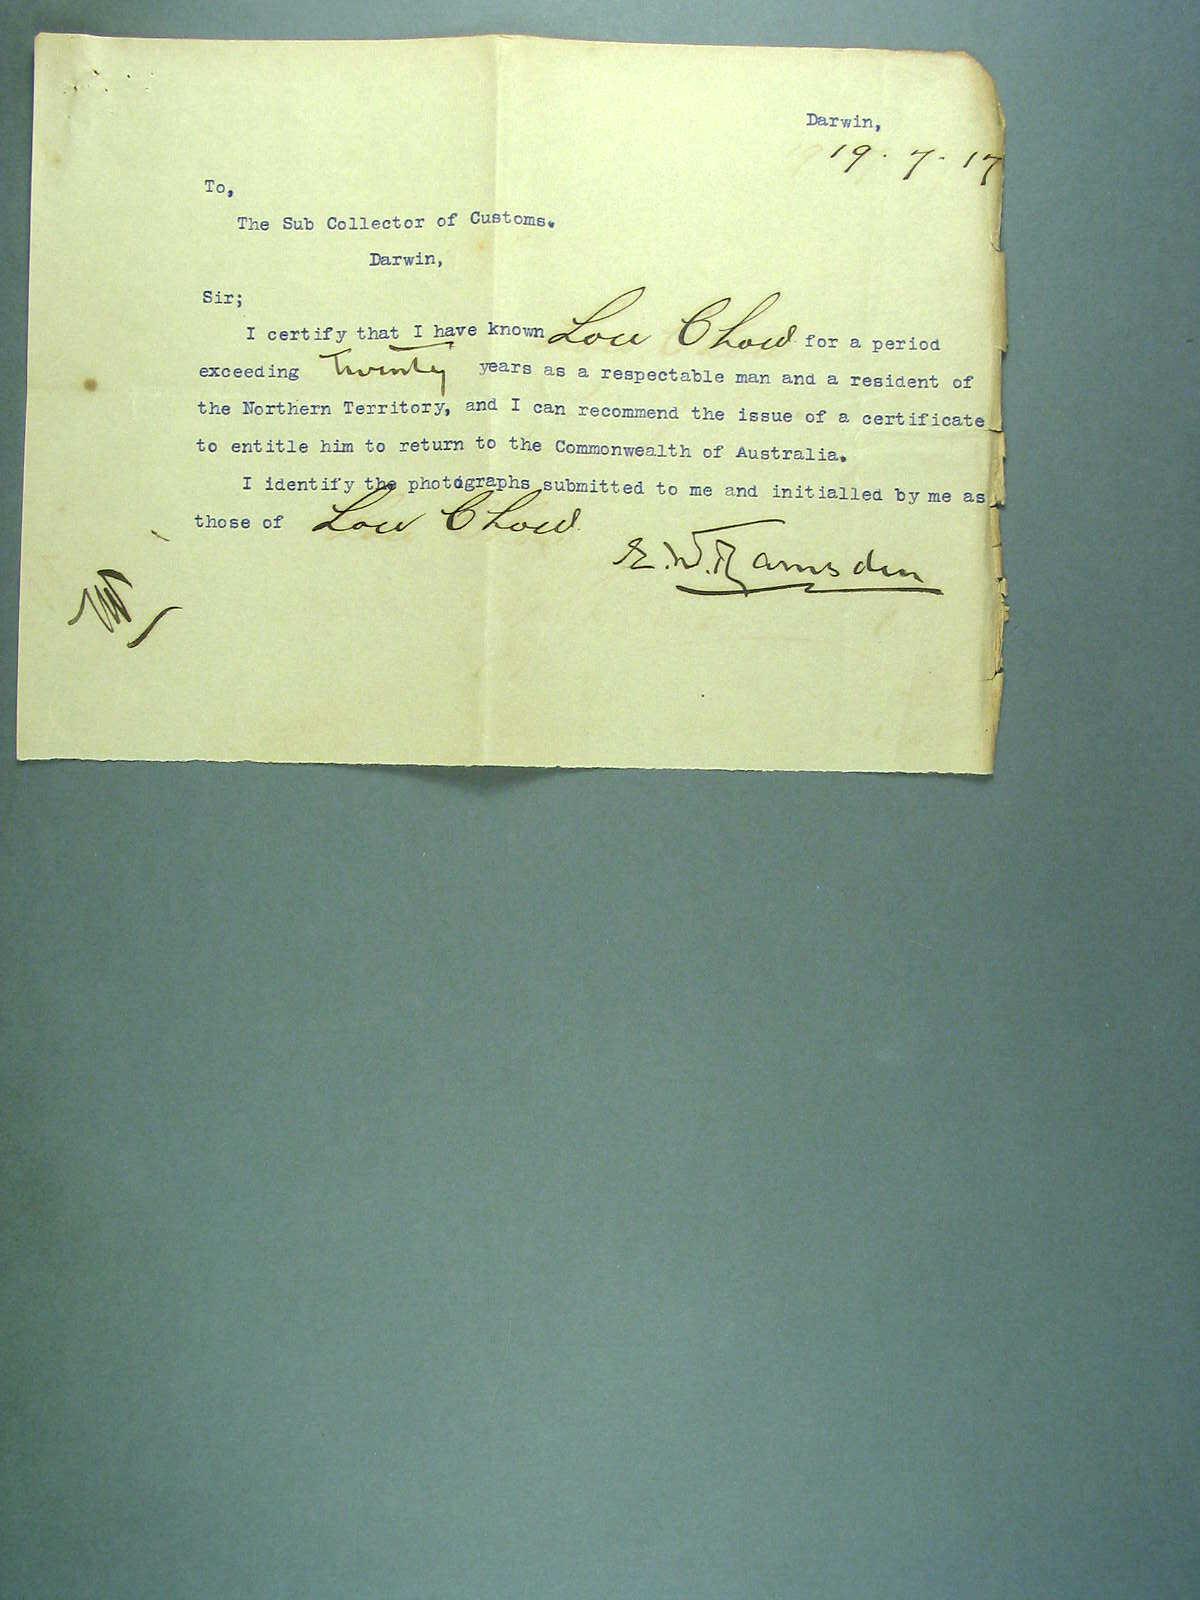 Darwin,
19. 7. 17
To,
The Sub Collector of Customs.
Darwin,
Sir;
I certify that I have known Low Chow for a period
exceeding Twenty years as a respectable man and a resident of
the Northern Territory, and I can recommend the issue of a certificate
to entitle him to return to the Commonwealth of Australia.
I identify the photographs submitted to me and initialled by me as
those of Low Chow
E. W. Ramsden